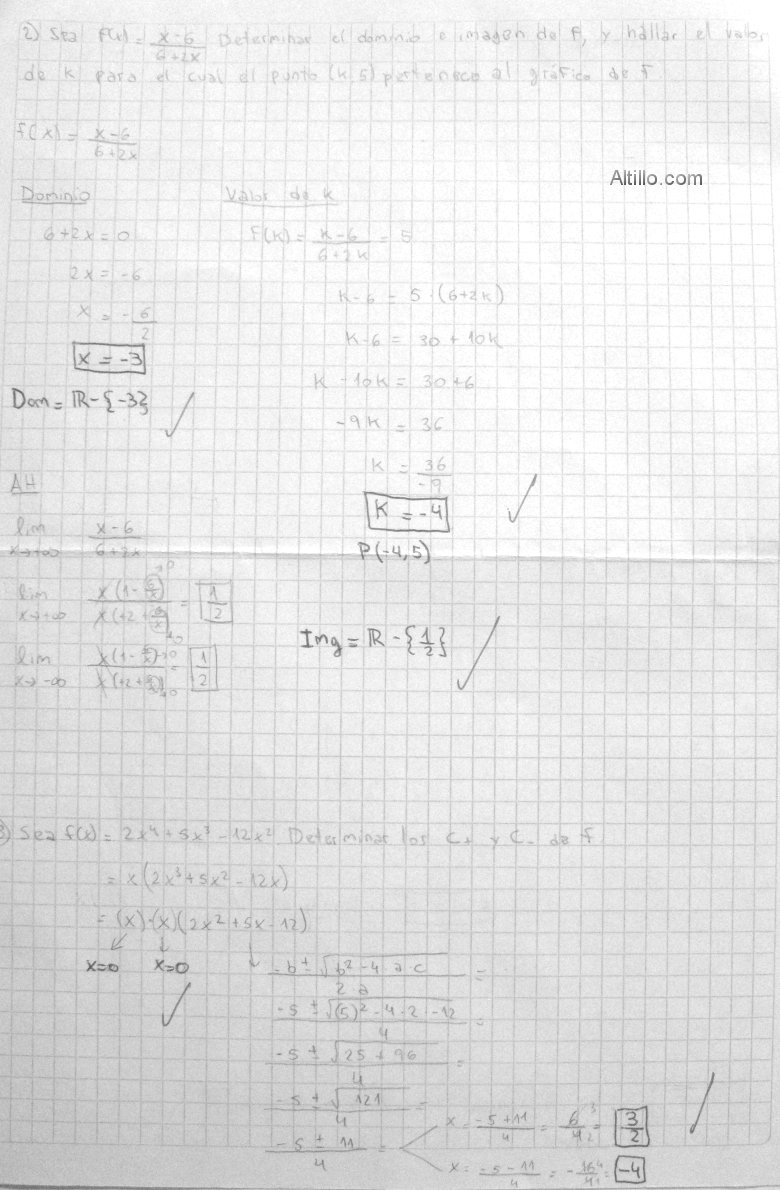 2) Sea f(x) = x-6 / 6+2x Determinar el dominio e imagen de f, y hallar el valor
de k para el cual el punto (k,5) pertenece al gráfico de f
f(x) = x-6 / 6+2x
Altillo.com
Dominio
6+2x = 0
2x = -6
x = -6/2
x = -3
Dom = ℝ-{-3}
Valor de k
f(k) = k-6 / 6+2k = 5
k-6 = 5·(6+2k)
k-6 = 30 + 10k
k -10k = 30+6
-9k = 36
k = 36/-9
K = -4
P(-4,5)
AH
lim x→+∞ x-6 / 6+2x
lim x→+∞ x(1-6/x)→0 / x(+2+6/x)→0 = 1/2
lim x→-∞ x(1-6/x)→0 / x(+2+6/x)→0 = 1/2
Img = ℝ - {1/2}
3) Sea f(x) = 2x⁴ + 5x³ - 12x² Determinar los C+ y C- de f
= x(2x³+5x²-12x)
= (x)·(x)(2x²+5x-12)
x=0 x=0
-b ± √b²-4·a·c / 2·a =
-5 ± √(5)²-4·2·-12 / 4 =
-5 ± √25+96 / 4 =
-5 ± √121 / 4 =
-5 ± 11 / 4 =
x = -5+11 / 4 = 6/4 = 3/2
x = -5-11 / 4 = -16/4 = -4